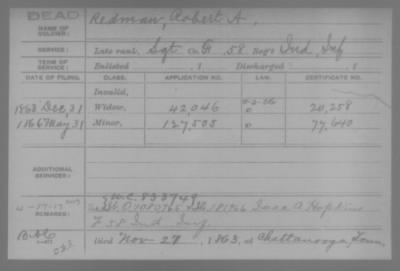 DEAD
NAME OF SOLDIER: Redman, Robert A.
SERVICE: Late rank, Sgt Co. G, 58 Reg't Ind. Inf
TERM OF SERVICE: Enlisted , 1 Discharged , 1
DATE OF FILING. CLASS. APPLICATION NO. LAW. CERTIFICATE NO.
Invalid,
1863 Dec, 31 Widow, 42,046 20,258
1866 May 31 Minor, 127,505 77,640
ADDITIONAL SERVICES:
W.C. 833749
REMARKS: Isaac A Hopkins
F 58 Ind Inf
Died Nov 27, 1863, at Chattanooga, Tenn,